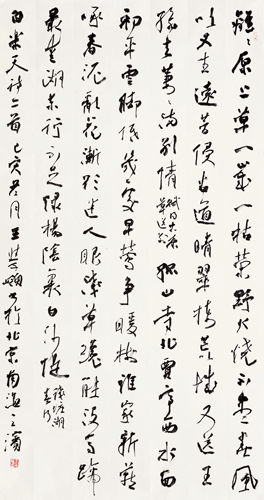 離離原上草一歲一枯榮野火燒不盡春風
吹又生遠芳侵古道晴翠接荒城又送王
孫去萋萋滿別情賦得古原草送別孤山寺北賈亭西水面
初平雲腳低幾處早鶯爭暖樹誰家新燕
啄春泥亂花漸欲迷人眼淺草纔能沒馬蹄
最愛湖東行不足綠楊陰裏白沙堤錢塘湖春行
白樂天詩二首己亥冬月王書於北京南海之濱